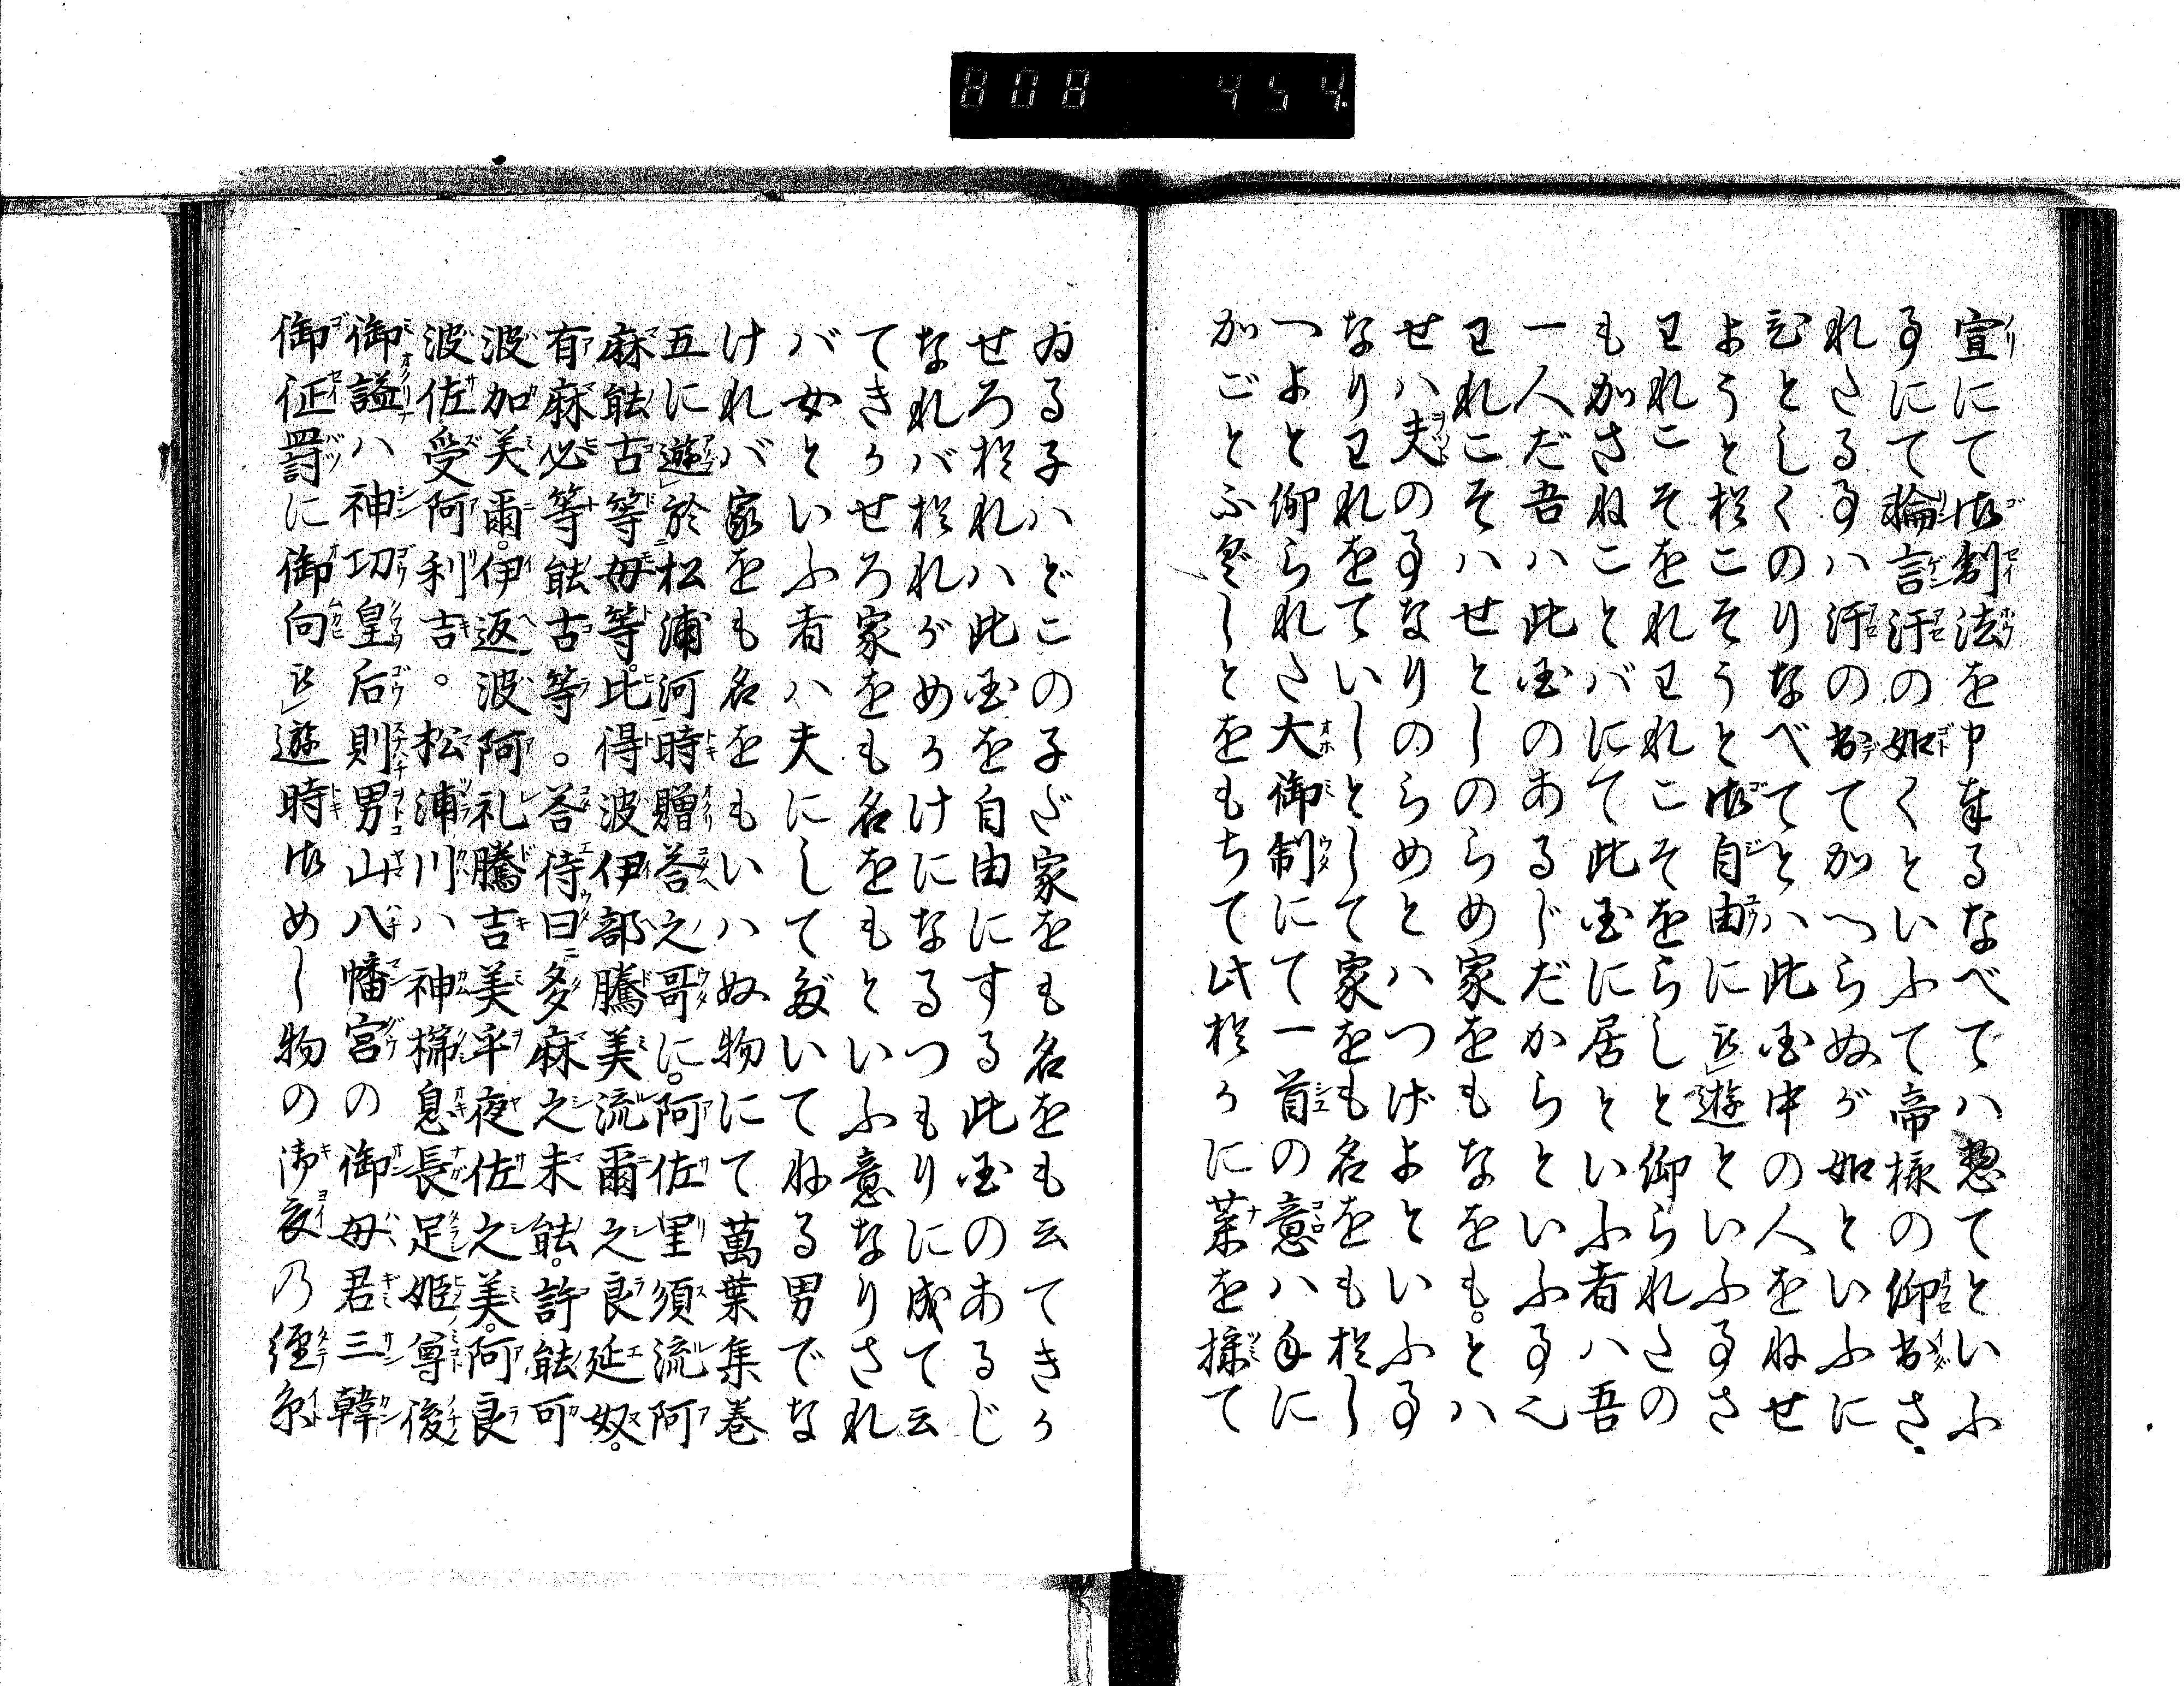 808 454
宣にて御制法を申奉るなべてハ惣てといふ
事にて輪言汗の如くといふて帝様の仰出さ
れたる事ハ汗の出てかへらぬが如といふに
ひとしくのりなべてとハ此国中の人をねせ
ようと於こそうと御自由に被遊といふ事さ
われこそをれわれこそをらしと仰られたの
も加さねことバにて此国に居といふ者ハ吾
一人だ吾ハ此国のあるじだからといふ事也
われこそハせとしのらめ家をもなをも。とハ
せハ夫の事なりのらめとハつげよといふ事
なりわれをていしとして家をも名をも於し
つよと仰られた大御制にて一首の意ハ手に
かごとふぐしとをもちて此於かに菜を採て
ゐる子ハどこの子ざ家をも名をも云てきか
せろ於れハ此国を自由にする此国のあるじ
なれバ於れがめかけになるつもりに成て云
てきかせろ家をも名をもといふ意なりされ
バ女といふ者ハ夫にして多いてねる男でな
けれバ家をも名をもいハぬ物にて萬葉集巻
五に遊於松浦河時贈答之哥に。阿佐里須流阿
麻能古等母等。比得波伊部騰美流爾之良延奴。
有麻必等能古等。答待曰多麻之末能。許能可
波加美爾。伊返波阿礼騰吉美乎夜佐之美。阿良
波佐受阿利吉。松浦川ハ神櫛息長足姫尊後
御謚ハ神功皇后則男山八幡宮の御母君三韓
御征罸に御向被遊時御めし物の御衣の經糸